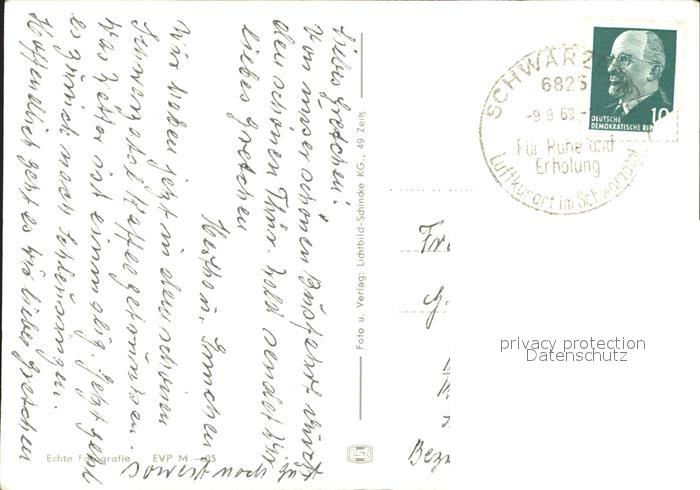 Liebes Gretchen!
Von unser schönen Busfahrt durch
den schönen Thür. Wald sendet Dir
liebes Gretchen
Wir haben jetzt in dem schönen
Schwarzatal Kaffee getrunken.
Das Wetter ist einmalig. Jetzt geht
es zurück nach Schleusingen.
Hoffendlich geht es Dir liebes Gretchen
soweit noch gut
Echte Fotografie EVP M -.25
Foto u. Verlag: Lichtbild-Schincke KG., 49 Zeitz
SCHWARZ
6825
-9.9.63.-
Für Ruhe und
Erholung
Luftkurort im Schwarzatal
10
DEUTSCHE
DEMOKRATISCHE REP
Fr
G
Bez
privacy protection
Datenschutz